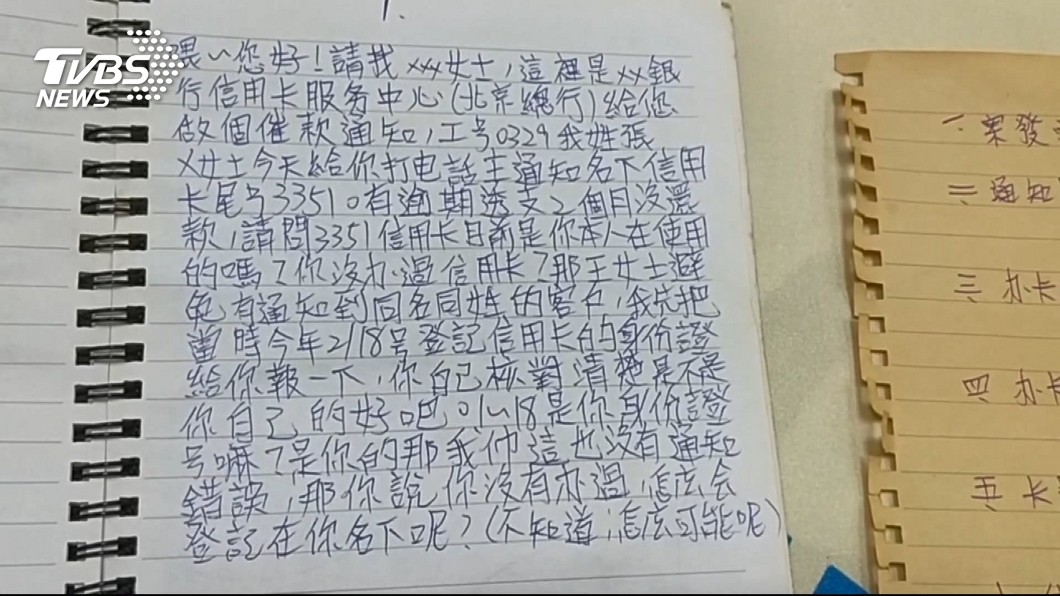 1.
TVBS
NEWS
喂~您好!請我xxx女士,這裡是xx銀
行信用卡服务中心(北京總行)給您
做個催款通知,工号0329我姓張
X女士今天給你打电話主通知名下信用
卡尾号3351。有逾期透支2個月沒還
款,請問3351信用卡目前是你本人在使用
的嗎?你沒办過信用卡?那王女士避
免有通知到同名同姓的客户,我先把
當時今年2/18号登記信用卡的身份證
給你報一下,你自己核對清楚是不是
你自己的好吧。1~18是你身份證
号嘛?是你的那我们這也沒有通知
錯誤,那你說你沒有办過,怎么会
登記在你名下呢?(不知道;怎么可能呢)
一、案發
二、通知
三、办卡
四、办卡
五、卡